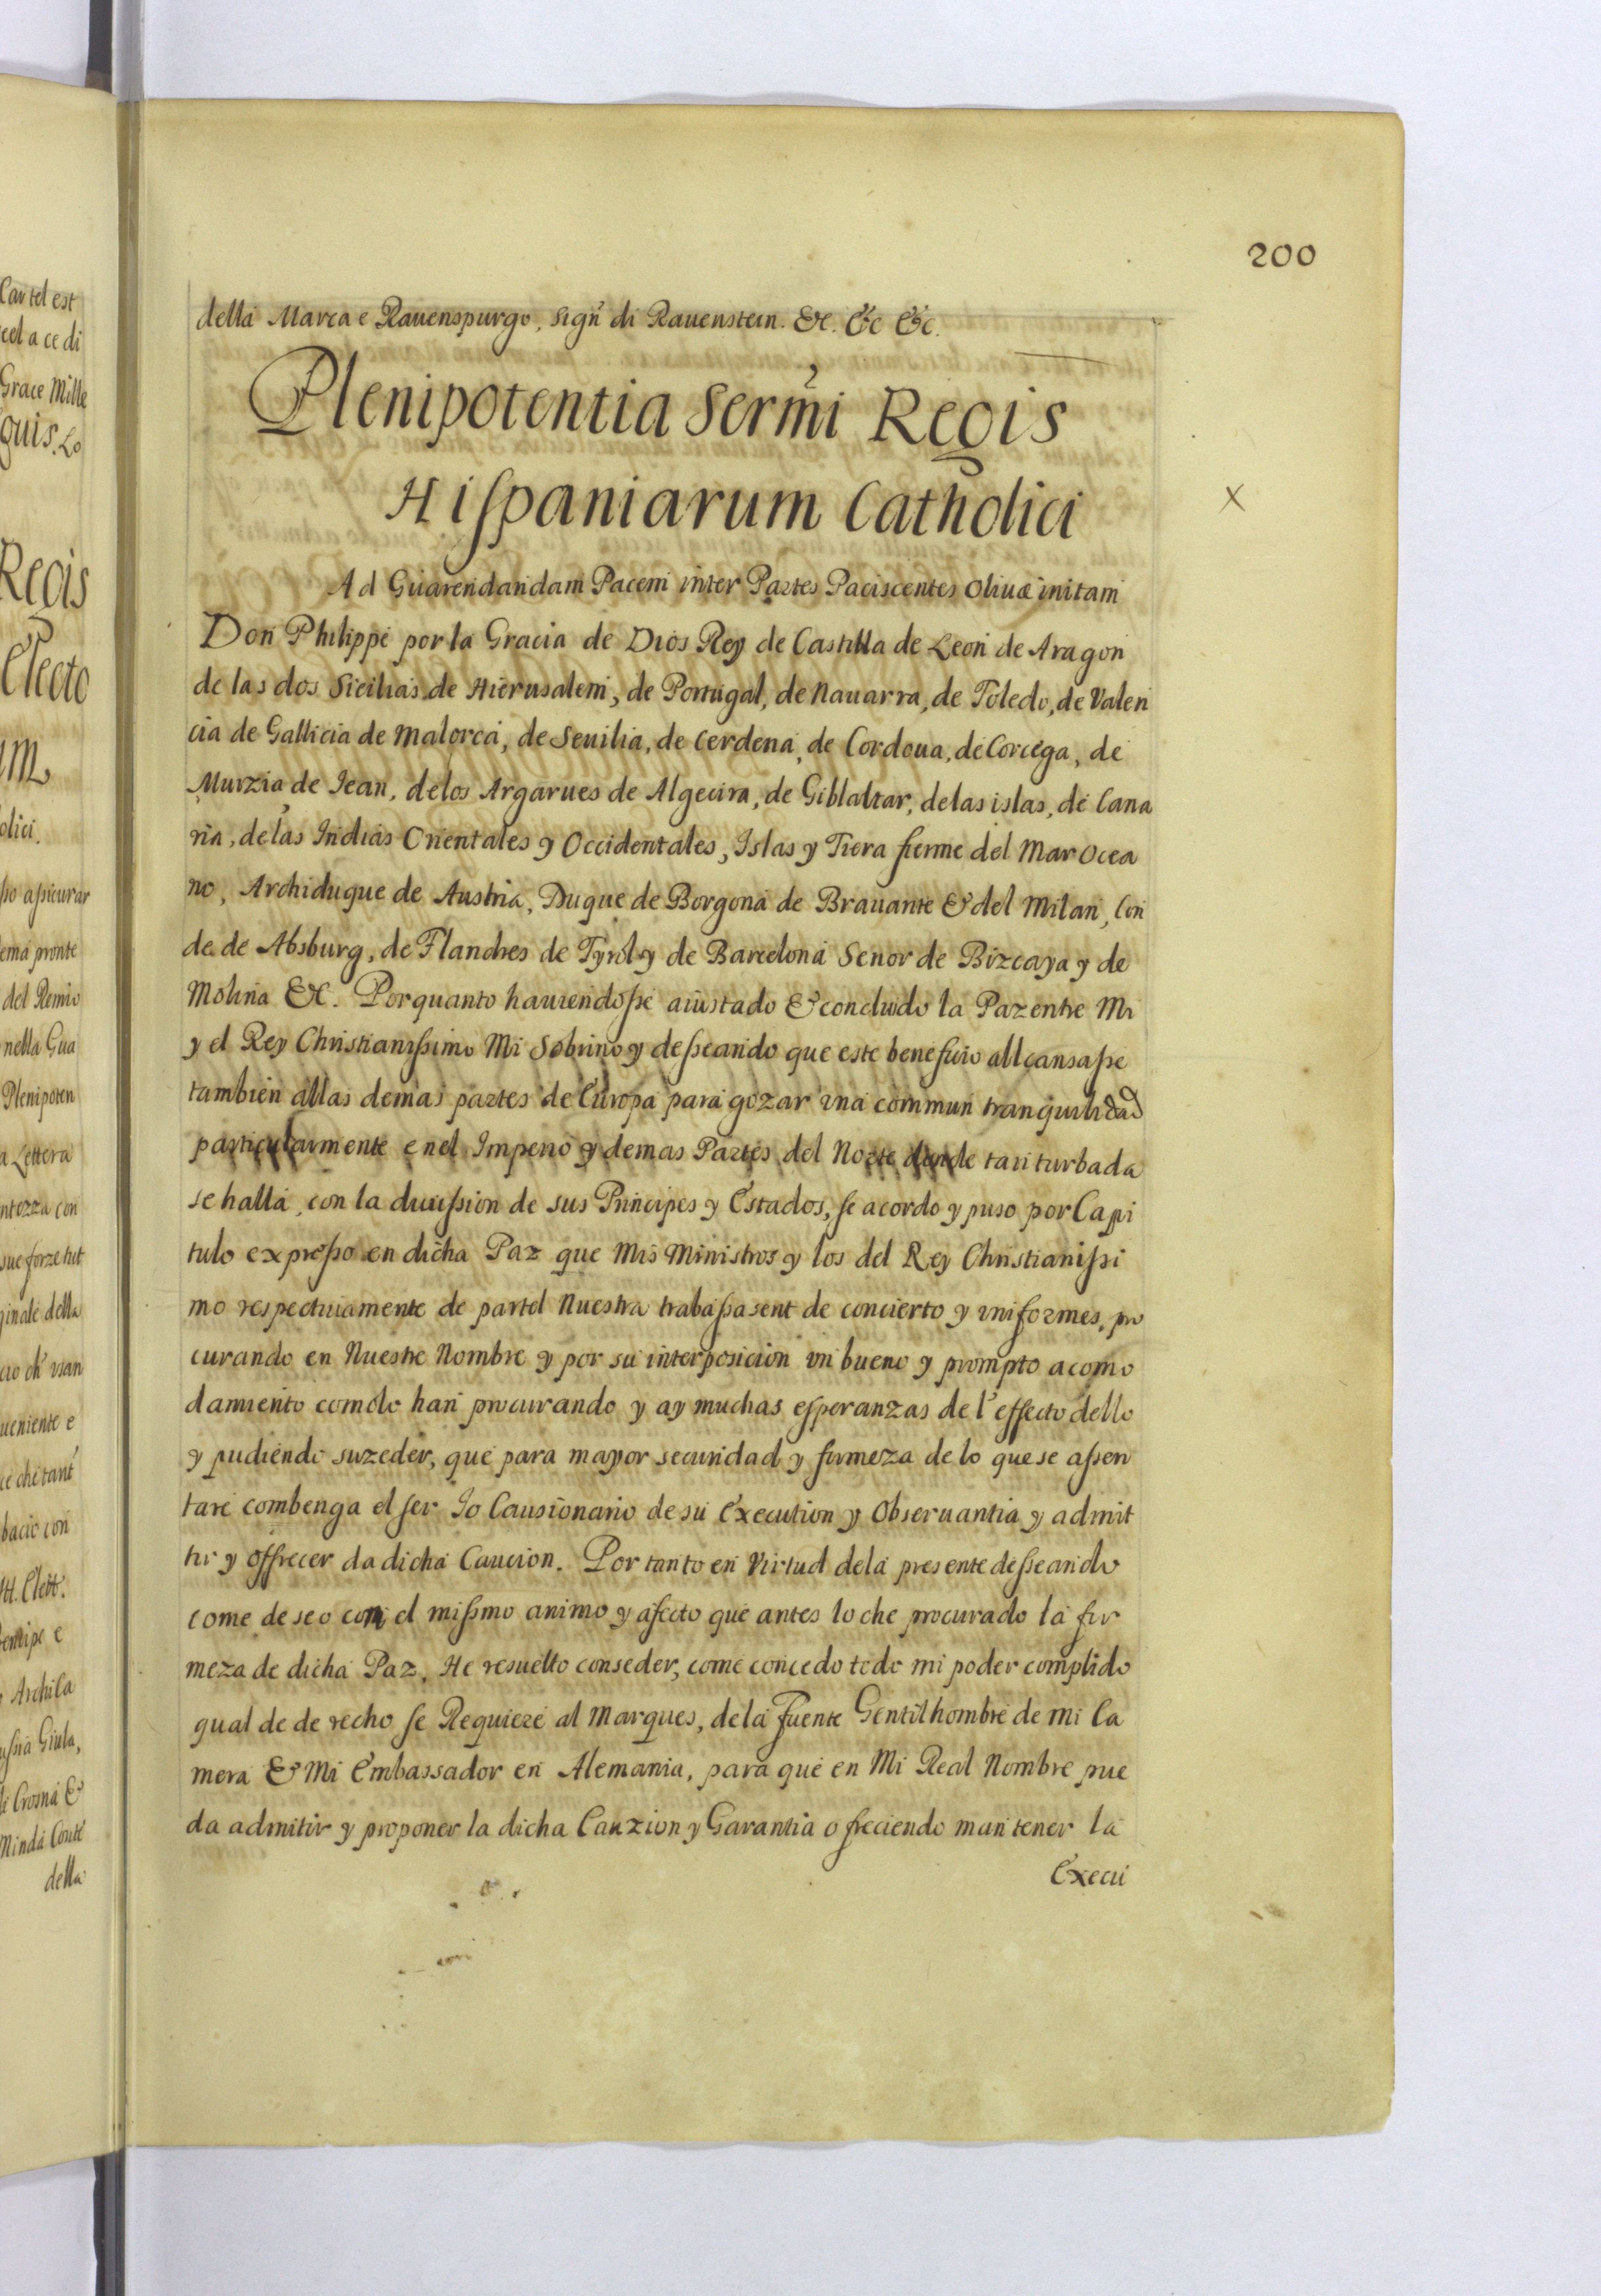 200
della Marca e Rauenspurgo, Sigñ di Rauenstein. &c. &c &c.
Plenipotentia Sermi Regis
Hiſpaniarum Catholici
X
Ad Guarendandam Pacem inter Partes Paciscentes Oliuæ initam
Don Philippe por la Gracia de Dios Rey de Castilla de Leon de Aragon
de las dos Sicilias de Hierusalem, de Portugal, de Nauarra, de Toledo, de Valen
cia de Gallicia de Malorca, de Seuilia, de Cerdena, de Cordoua, de Corcega, de
Murzia de Iean, delos Argarues de Algecira, de Giblaltar, delas islas, de Cana
ria, de las Indias Orientales y Occidentales, Islas y Tiera fierme del Mar Ocea
no, Archiduque de Austria, Duque de Borgona de Brauante & del Milan, Con
de de Absburg, de Flandres de Tyrol y de Barcelona Senor de Bizcaya y de
Molina &c. Porquanto hauiendoſse aiustado & concluido la Paz entre Mi
y el Rey Christianiſsimo Mi Sobrino y deſseando que este beneficio allcansaſse
tambien allas demas partes de Europa para gozar una commun tranquilidad
particularmente enel Imperio y demas Partes del Norte donde tan turbada
se halla, con la diuiſsion de sus Principes y Estados, ſe acordo y puso por Capi
tulo expreſso en dicha Paz que Mis Ministros y los del Rey Christianiſsi
mo respectiuamente de partel Nuestra trabaſsasent de concierto y vniformes, pro
curando en Nuestre Nombre y por su interposicion vn bueno y prompto acomo
damiento comolo han procurando y ay muchas eſperanzas de l'effecto dello
y pudiendo suzeder, que para mayor securidad y firmeza de lo que se aſsen
tare combenga el ſer Io Causionario de su Execution y Obseruantia y admit
tir y offrecer da dicha Caucion. Por tanto en Virtud dela presente deſseando
come deseo con el miſsmo animo y afecto que antes lo che procurado la fir
meza de dicha Paz. He resuelto conseder, come concedo todo mi poder complido
qual de derecho ſe Requiere al Marques, dela Fuente Gentilhombre de mi Ca
mera & Mi Embassador en Alemania, para que en Mi Real Nombre pue
da admitir y proponer la dicha Cauzion y Garantia ofreciendo mantener la
Execu